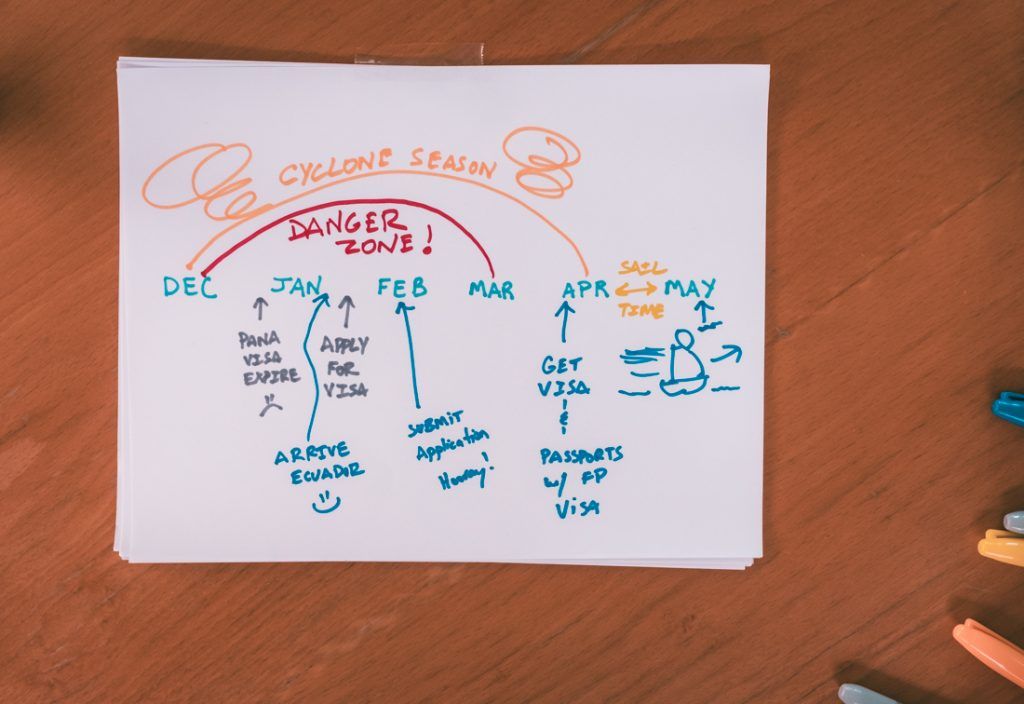 CYCLONE SEASON
DANGER
ZONE!
DEC JAN FEB MAR APR MAY
SAIL
TIME
PANA
VISA
EXPIRE
APPLY
FOR
VISA
ARRIVE
ECUADOR
SUBMIT
Application
Hooray!
GET
VISA
&
PASSPORTS
w/ FP
VISA